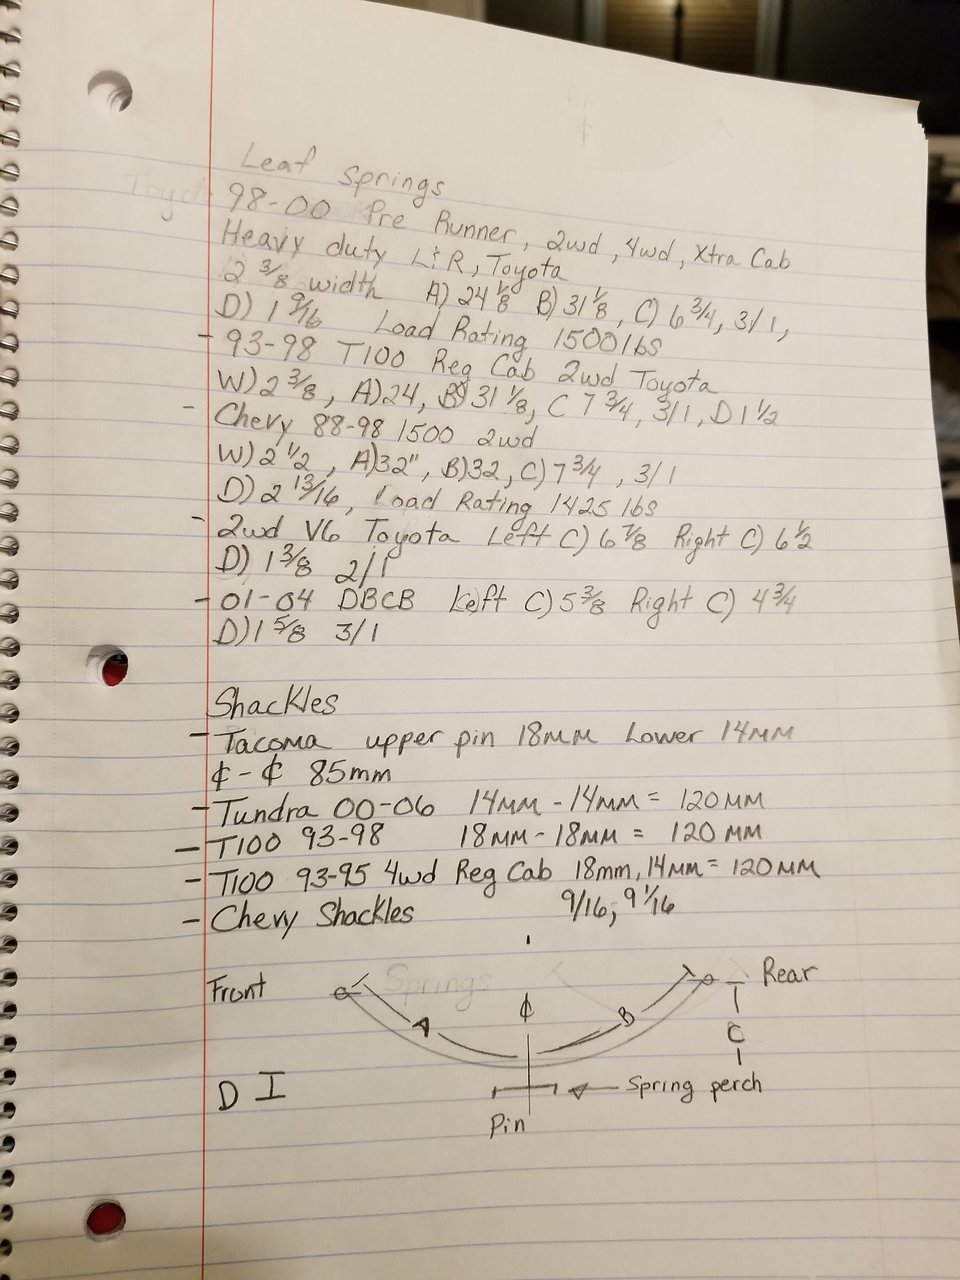 Leaf Springs
98-00 Pre Runner, 2wd, 4wd, Xtra Cab
Heavy duty L&R, Toyota
2 3/8 width A) 24 1/8 B) 31 1/8, C) 6 3/4, 3/1,
D) 1 9/16 Load Rating 1500 lbs
- 93-98 T100 Reg Cab 2wd Toyota
W) 2 3/8, A) 24, B) 31 1/8, C 7 3/4, 3/1, D 1 1/2
- Chevy 88-98 1500 2wd
W) 2 1/2, A) 32", B) 32, C) 7 3/4, 3/1
D) 2 13/16, Load Rating 1425 lbs
- 2wd V6 Toyota Left C) 6 7/8 Right C) 6 1/2
D) 1 3/8 2/1
- 01-04 DBCB Left C) 5 3/8 Right C) 4 3/4
D) 1 5/8 3/1
Shackles
- Tacoma upper pin 18MM Lower 14MM
¢-¢ 85mm
- Tundra 00-06 14MM - 14MM = 120MM
- T100 93-98 18MM - 18MM = 120MM
- T100 93-95 4wd Reg Cab 18mm, 14MM = 120MM
- Chevy Shackles 9/16, 9 1/16
Front Springs Rear
A ¢ B C
D I Spring perch
Pin